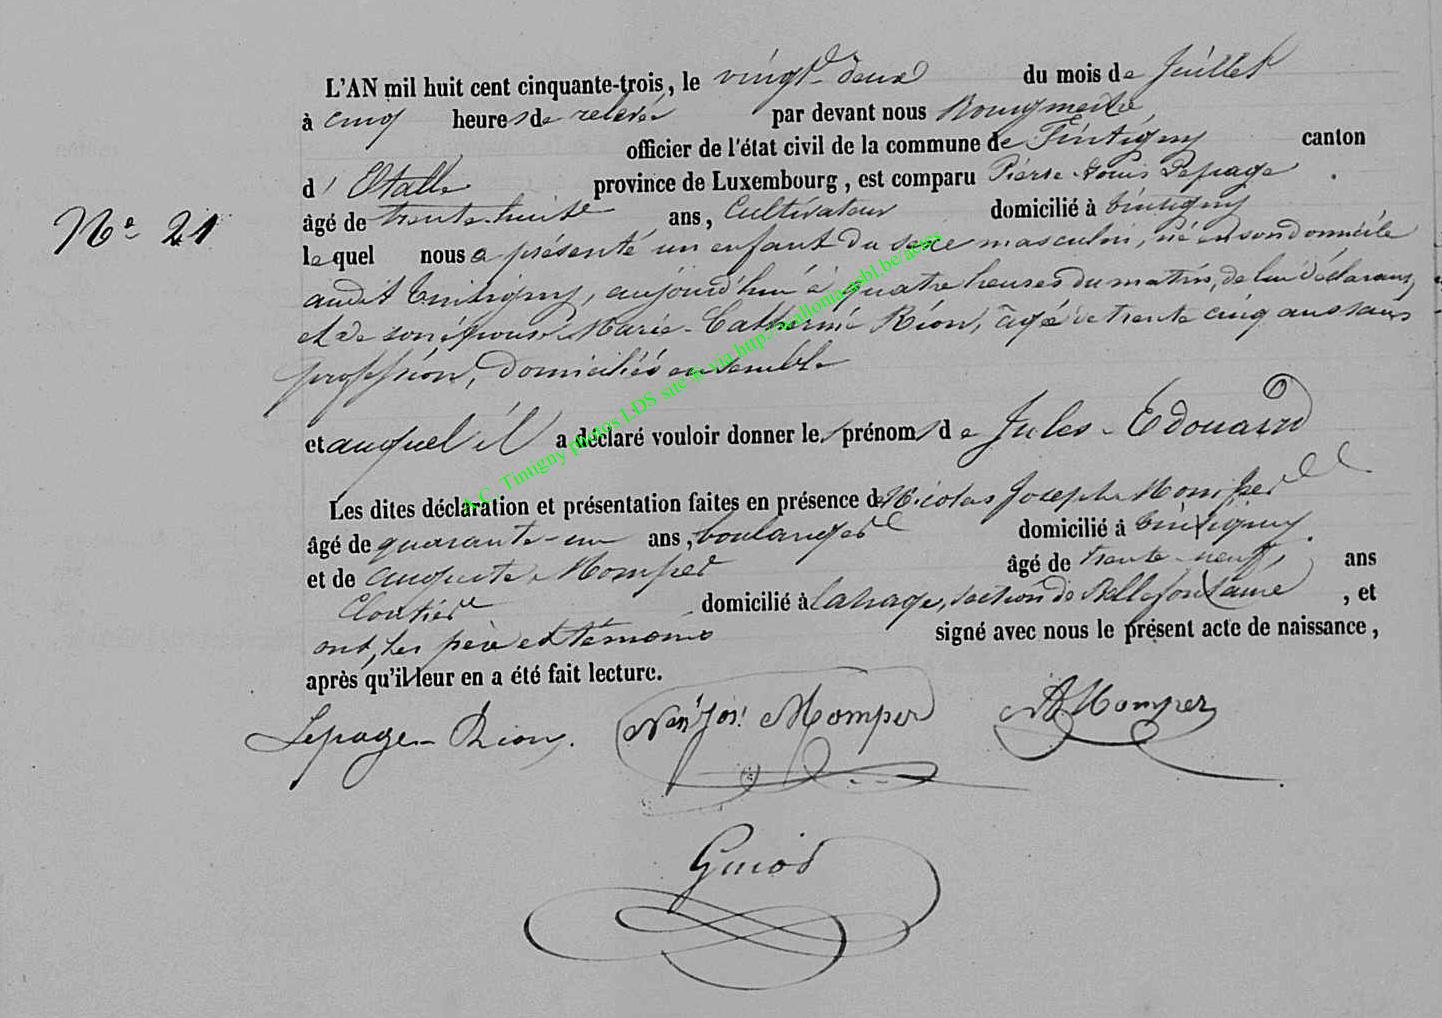 L'AN mil huit cent cinquante-trois, le vingt-deux du mois de Juillet
à cinq heures de relevée par devant nous Bourgmestre
officier de l'état civil de la commune de Tintigny canton
d'Etalle province de Luxembourg, est comparu Pierre-Louis Lepage
âgé de trente-huit ans, Cultivateur domicilié à Tintigny
N° 21
lequel nous a présenté un enfant du sexe masculin, né en son domicile
audit Tintigny, aujourd'hui à quatre heures du matin, de lui déclarant
et de son épouse Marie-Catherine Rion, âgée de trente cinq ans sans
profession, domiciliés ensemble
et auquel il a déclaré vouloir donner les prénoms de Jules-Edouard
Les dites déclaration et présentation faites en présence de Nicolas Joseph Momper
âgé de quarante-un ans, boulanger domicilié à Tintigny.
et de Auguste Momper âgé de trente-neuf, ans
Cloutier domicilié à Lahage, section de Bellefontaine, et
ont, les père et témoins signé avec nous le présent acte de naissance,
après qu'il leur en a été fait lecture.
Lepage-Rion. Nas Jos: Momper A Momper
Guiod
A.C. Tintigny photos LDS site & via http://wallonia-asbl.be/actes